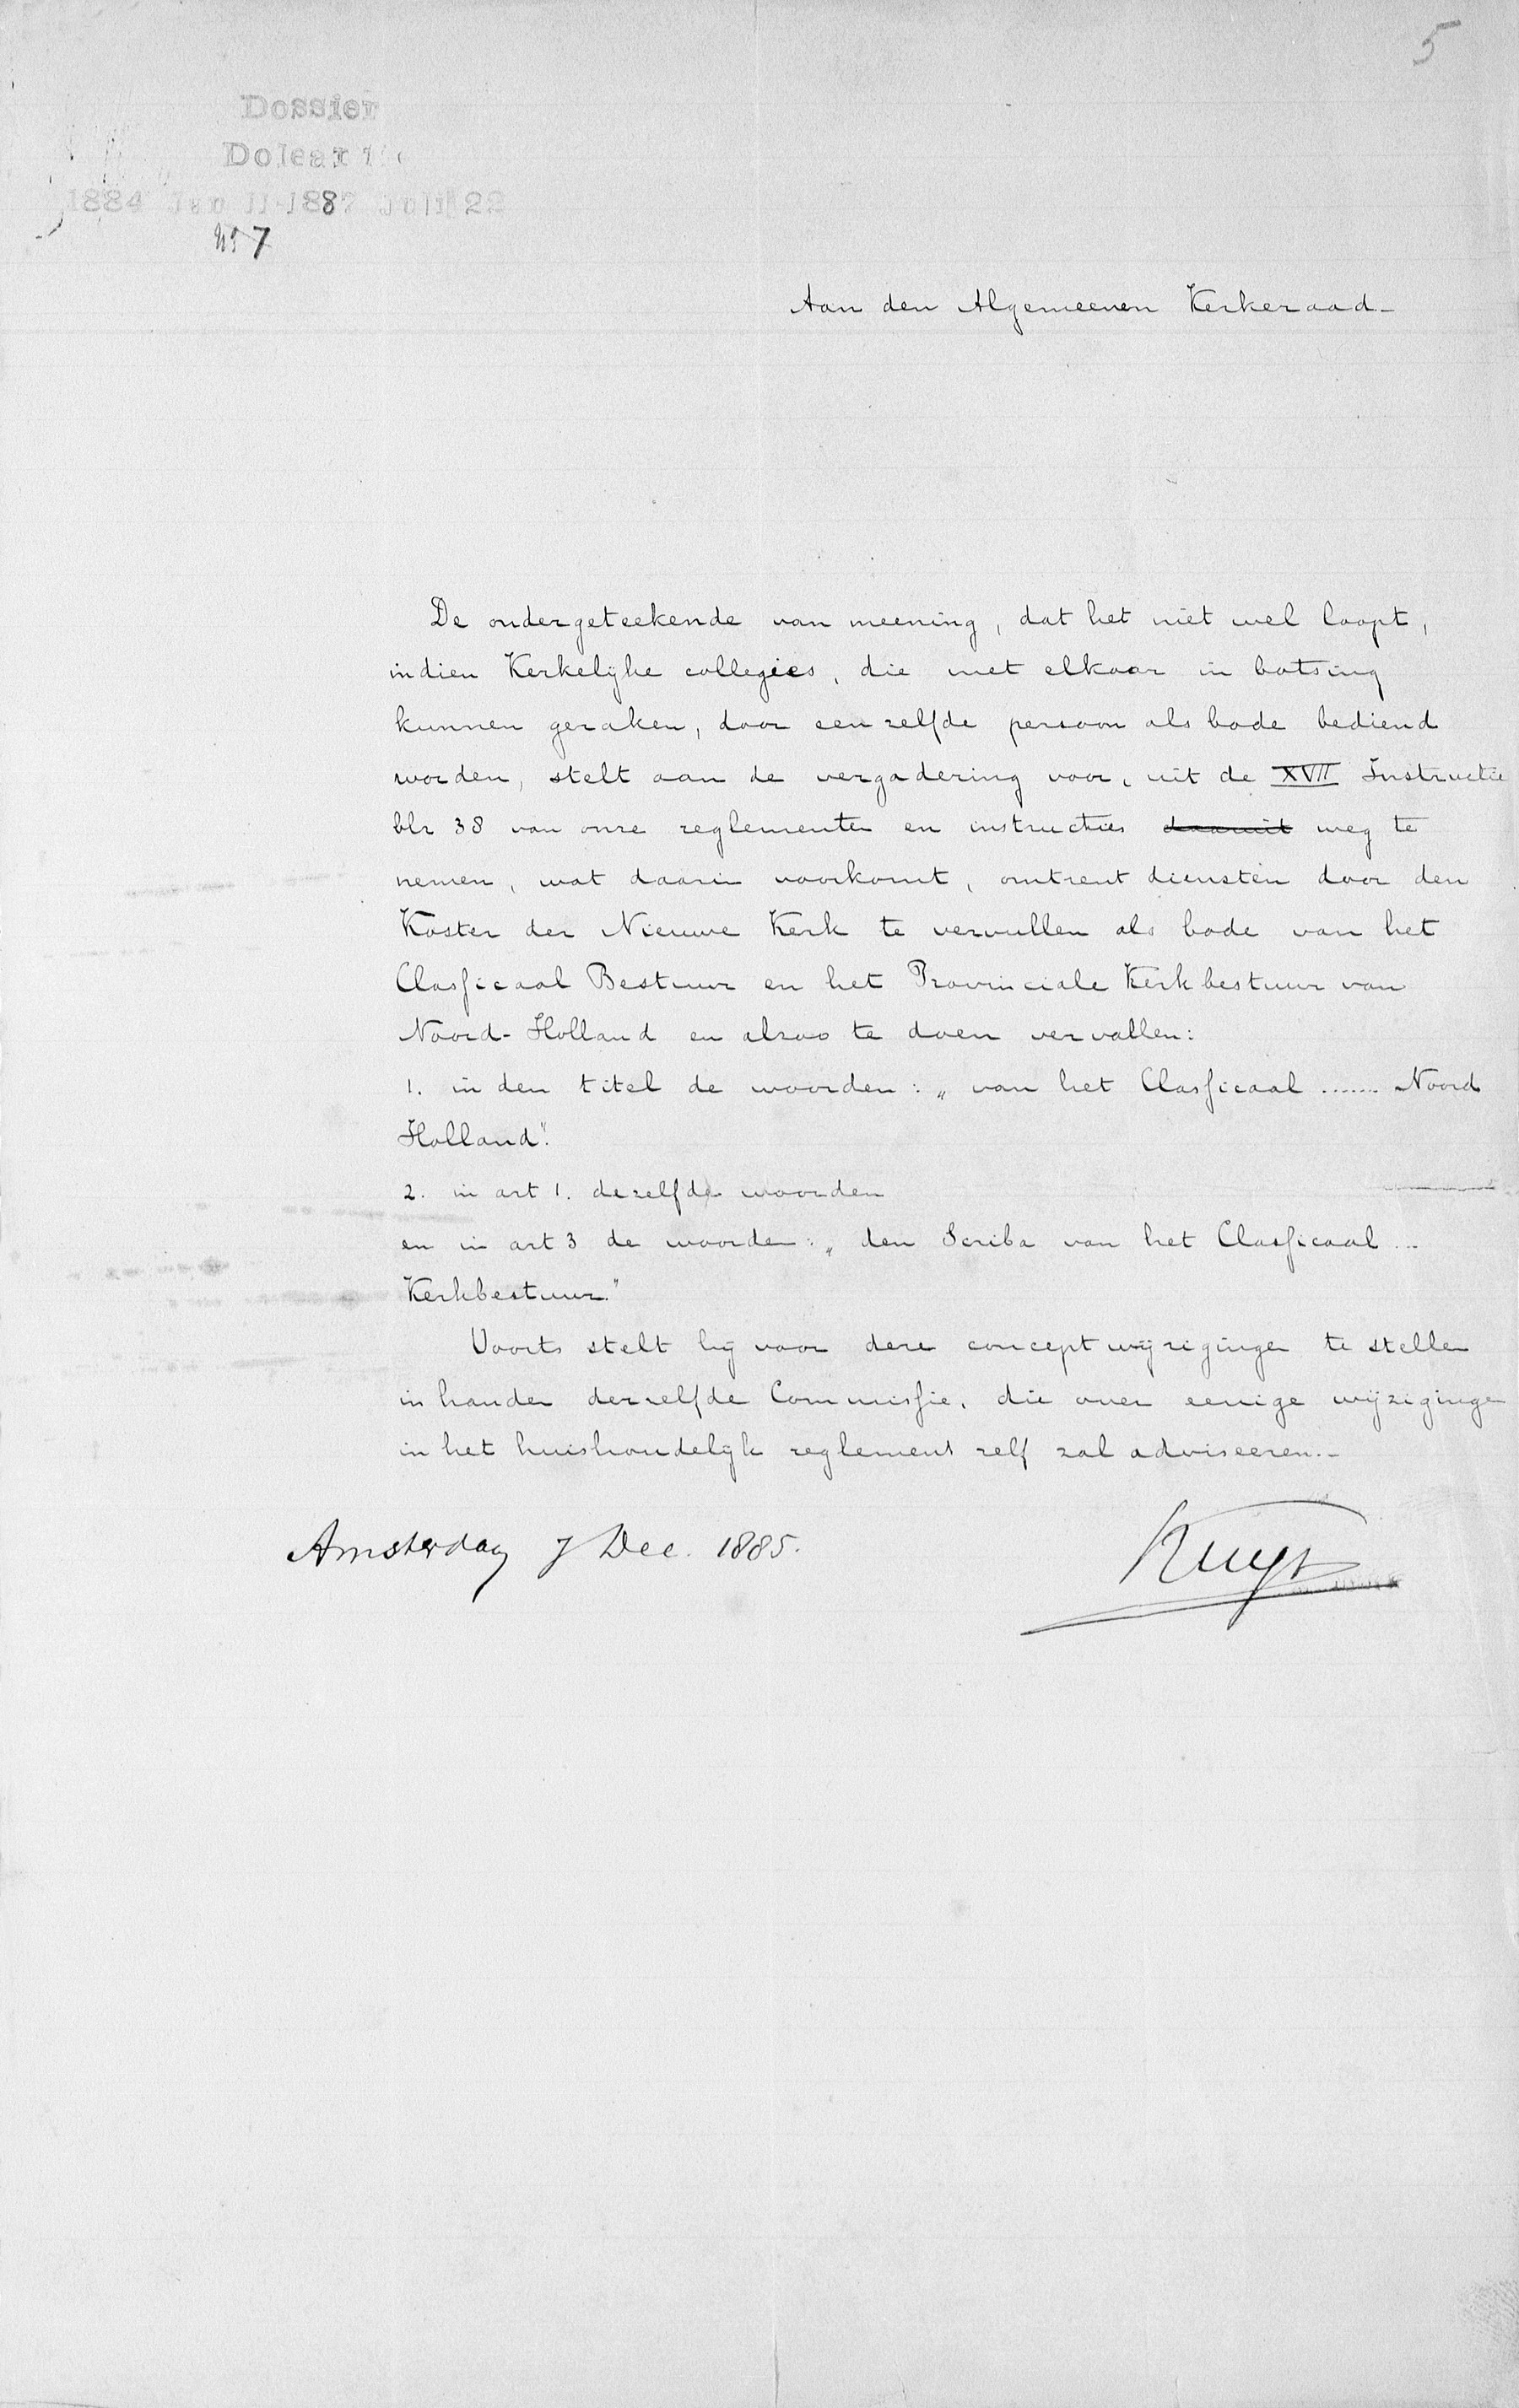 5
Dossier
Doleantie
1884 Jan 11-1887 Juli 22
No 7
Aan den Algemeenen Kerkeraad-
De ondergeteekende van meening, dat het niet wel loopt,
indien Kerkelijke collegies, die met elkaar in botsing
kunnen geraken, door een zelfde persoon als bode bediend
worden, stelt aan de vergadering voor, uit de XVII Instructie
blz 38 van onze reglementen en instructies daaruit weg te
nemen, wat daarin voorkomt, omtrent diensten door den
Koster der Nieuwe Kerk te vervullen als bode van het
Classicaal Bestuur en het Provinciale Kerkbestuur van
Noord-Holland en alzoo te doen vervallen:
1. in den titel de woorden: „van het Classicaal ....... Noord
Holland".
2. in art 1. dezelfde woorden
en in art 3 de woorden: „den Scriba van het Classicaal ...
Kerkbestuur."
Voorts stelt hij voor deze concept wijzigingen te stellen
in handen derzelfde Commissie, die over eenige wijzigingen
in het huishoudelijk reglement zelf zal adviseeren.-
Amsterdam 7 Dec. 1885.
Kuyper